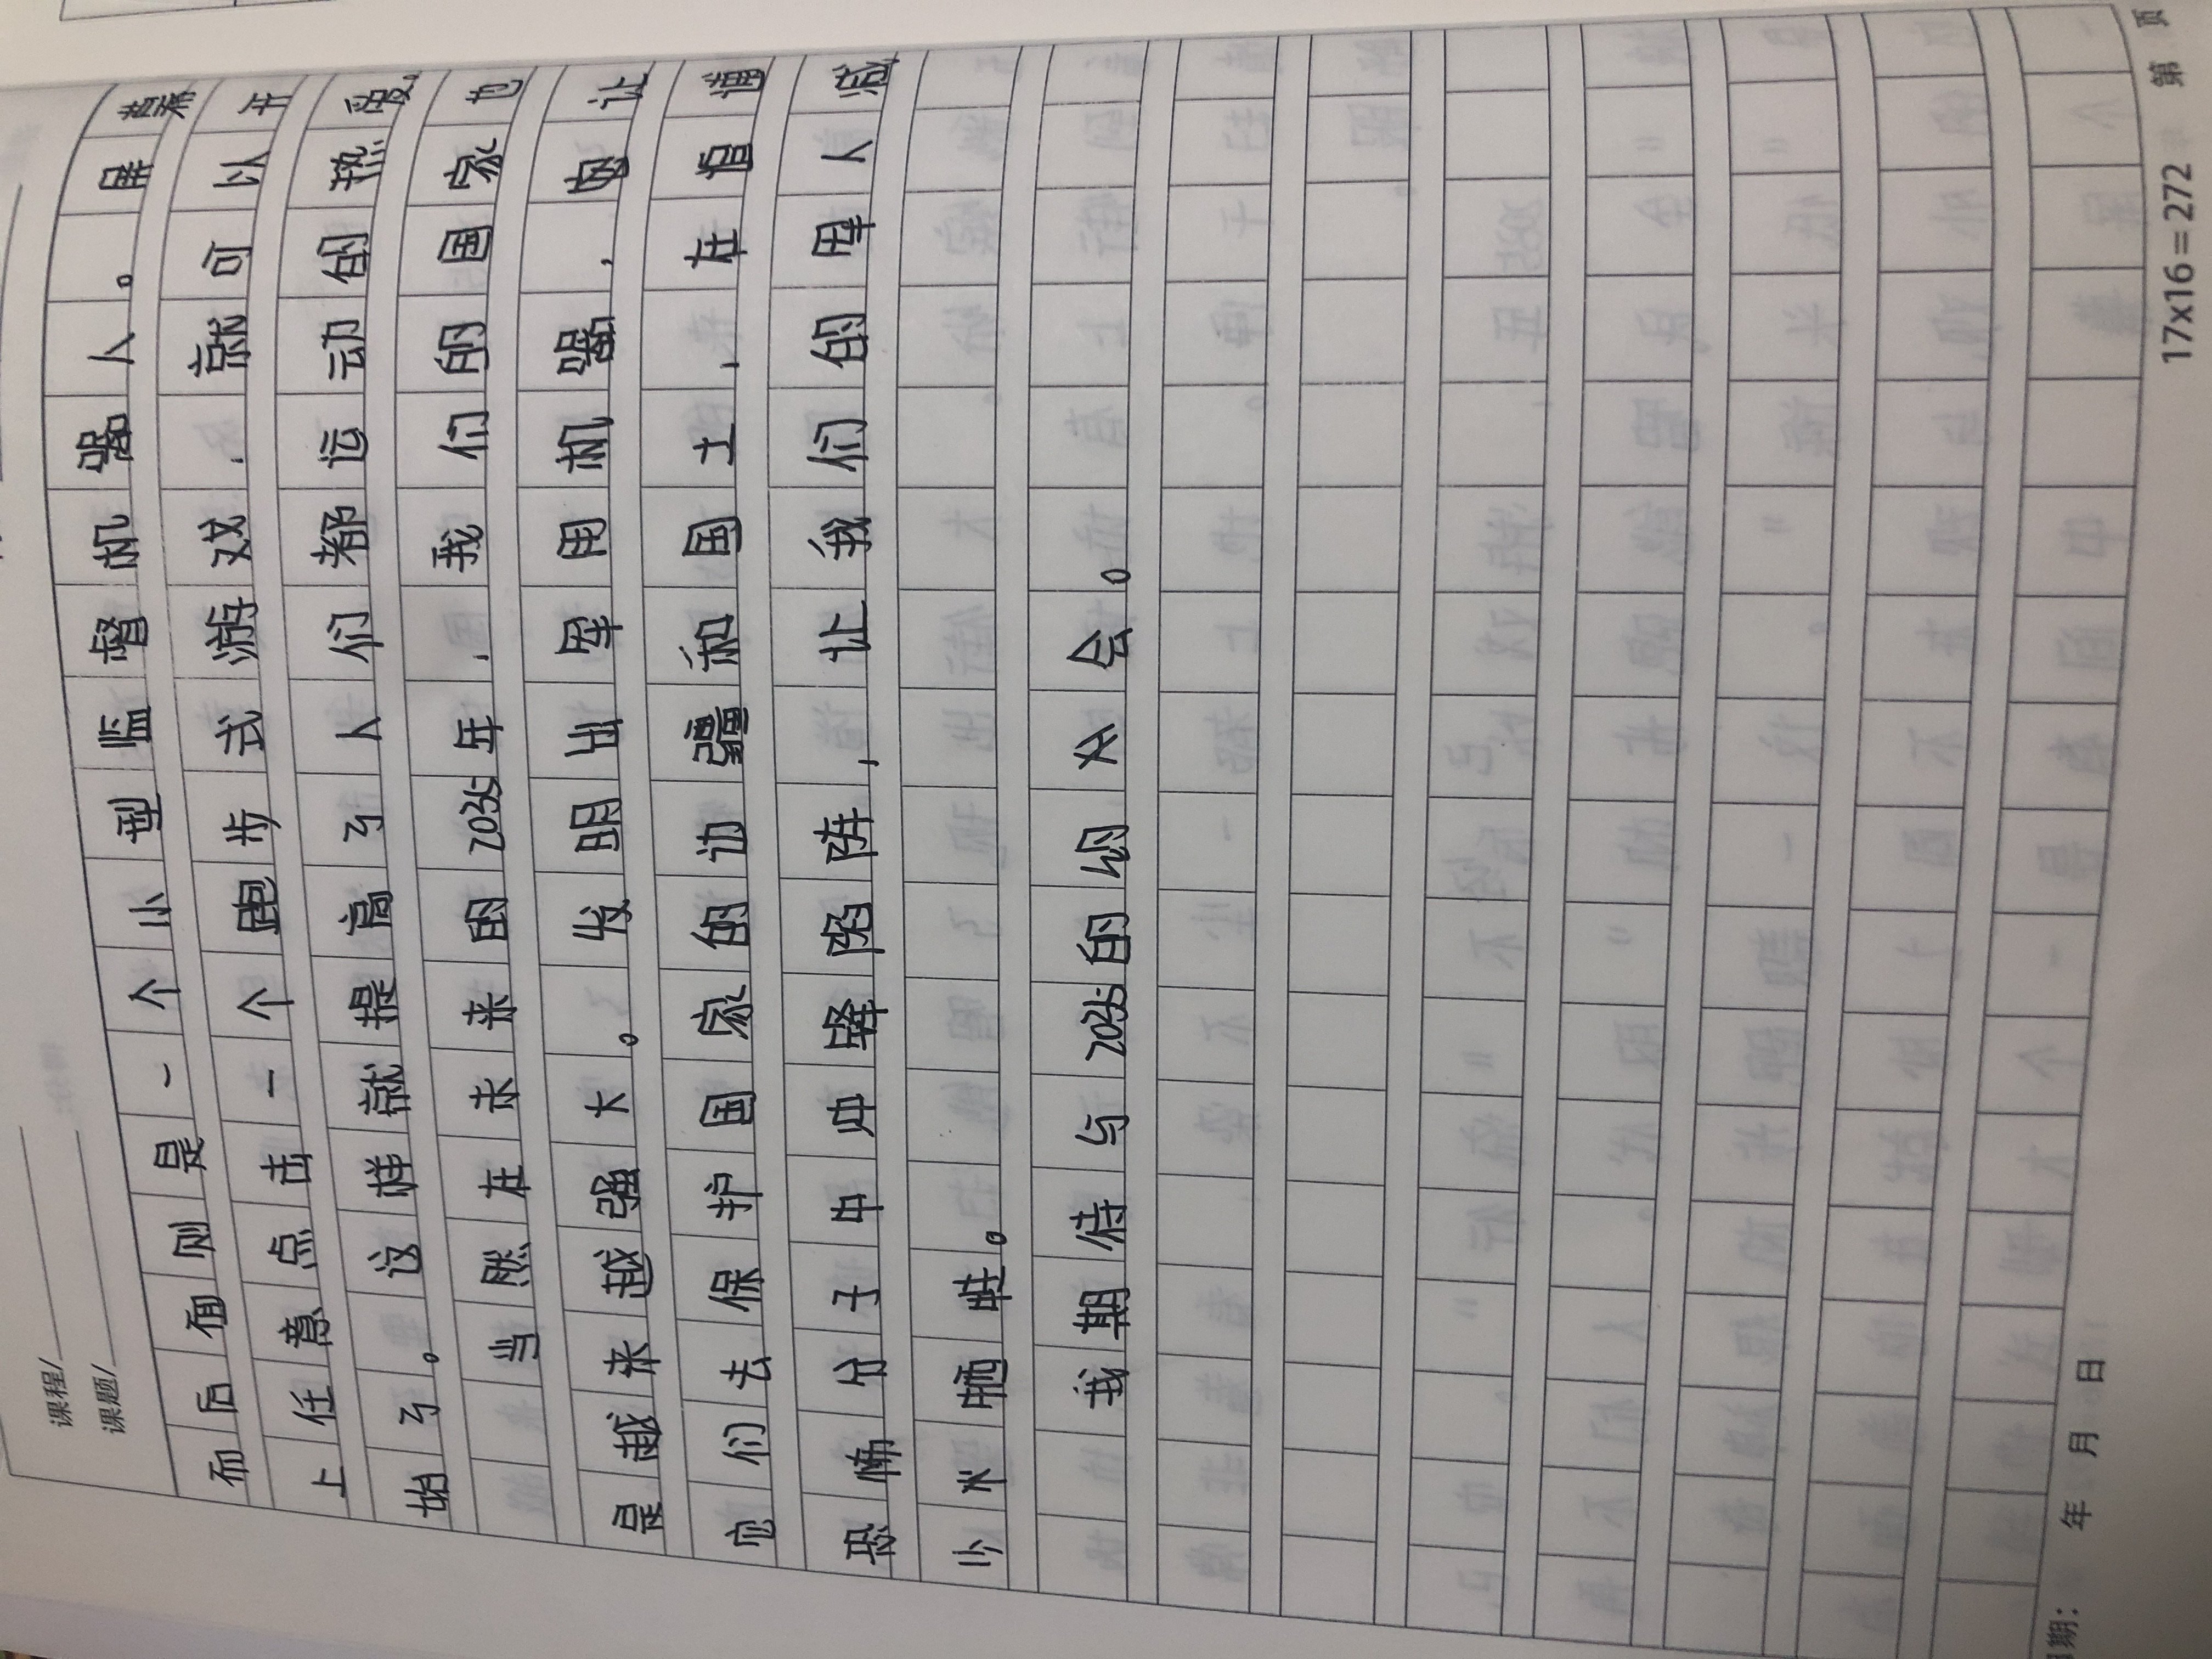 课程/
课题/
而后面则是一个小型监督机器人。屏幕
上任意点击一个跑步式游戏,就可以开
始了。这样就提高了人们都运动的热爱。
当然在未来的2035年,我们的国家也
是越来越强大。发明出军用机器,让
它们去保护国家的边疆和国土,在值
恐怖分子中冲锋陷阵,让我们的军人减
少牺牲。
我期待与2035的约会。
期: 年 月 日
17x16=272 第 页